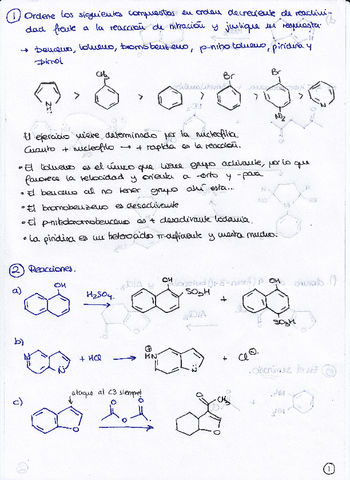 ① Ordene los siguientes compuestos en orden decreciente de reactivi-
dad frente a la reacción de nitración y justifique su respuesta
→ benceno, tolueno, bromobenceno, p-nitrotolueno, piridina y
pirrol
CH3 Br Br
N > > > > > N
H
NO2
El ejercicio viene determinado por la nucleofilia
Cuanto + nucleofilo → + rapida es la reacción.
• El tolueno es el único que tiene grupo activante, por lo que
favorece la velocidad y orienta a -orto y -para.
• El benceno al no tener grupo ahí esta...
• El bromobenzeno es desactivante
• El p-nitrobromobenceno es + desactivante todavía.
• La piridina es un heterociclo π-deficiente y cuesta mucho.
② Reacciones.
a) OH H2SO4 OH SO3H + OH SO3H
b) N N + HCl → HN N + Cl⊖
⊕
c) ataque al C3 siempre
O O O O O CH3 O
①